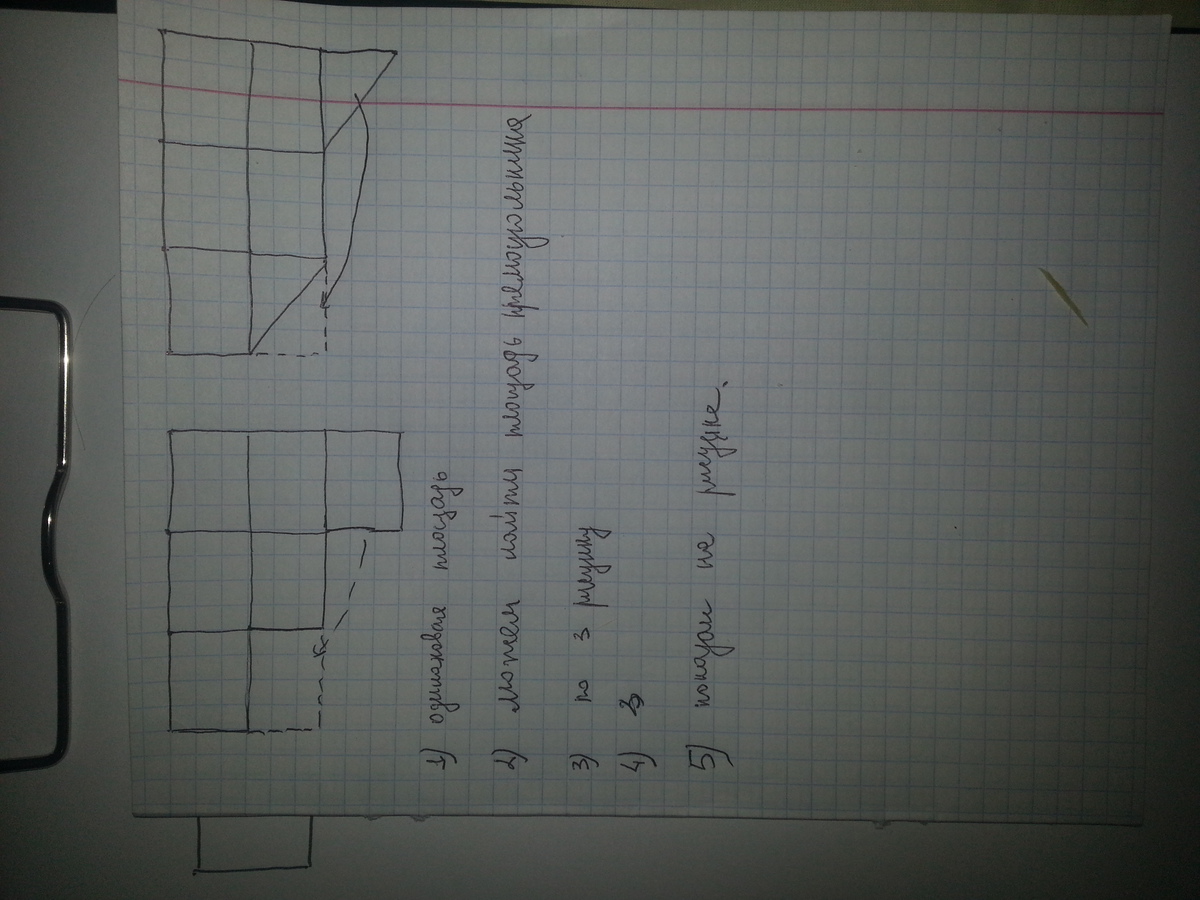 1) одинаковая площадь
2) можем найти площадь прямоугольника
3) по 3 рисунку
4) 3
5) показал на рисунке.